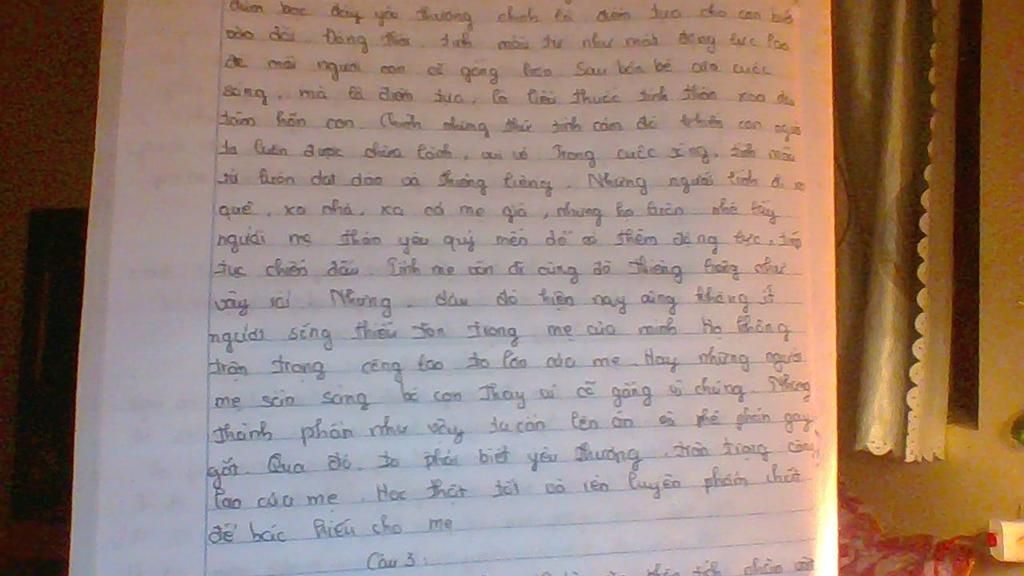 đầy yêu thương chính là điểm tựa cho con bước
vào đời. Đồng thời, tình mẫu tử như một động lực lao
để mỗi người con cố gắng hơn. Sau bốn bể của cuộc
sống, mà là điểm tựa, là liều thuốc tinh thần xoa dịu
tâm hồn con. Chính những thứ tình cảm đó khiến con người
ta luôn được chữa lành, vui vẻ. Trong cuộc sống, tình mẫu
tử luôn dạt dào và thiêng liêng. Những người lính đi xa
quê, xa nhà, xa cả mẹ già, nhưng họ luôn nhớ
người mẹ thân yêu quý mến để có thêm động lực, tiếp
tục chiến đấu. Tình mẹ con đi cùng đó thiêng liêng như
vậy Nhưng, đâu đó hiện nay cũng không ít
người sống thiếu tôn trọng mẹ của mình. Họ không
trân trọng công lao to lớn của mẹ. Hay những người
mẹ sẵn sàng bỏ con thay vì cố gắng vì chúng. Những
thành phần như vậy ta cần lên án và phê phán gay
gắt. Qua đó, ta phải biết yêu thương, trân trọng công
lao của mẹ. Học thật tốt và rèn luyện phẩm chất
để báo hiếu cho mẹ
Câu 3:
phân tích